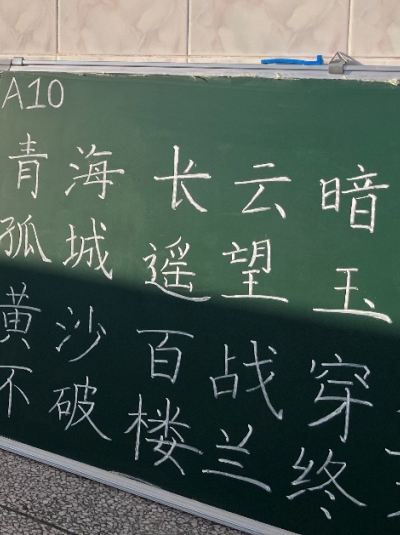 A10
青海长云暗
孤城遥望玉
黄沙百战穿
不破楼兰终